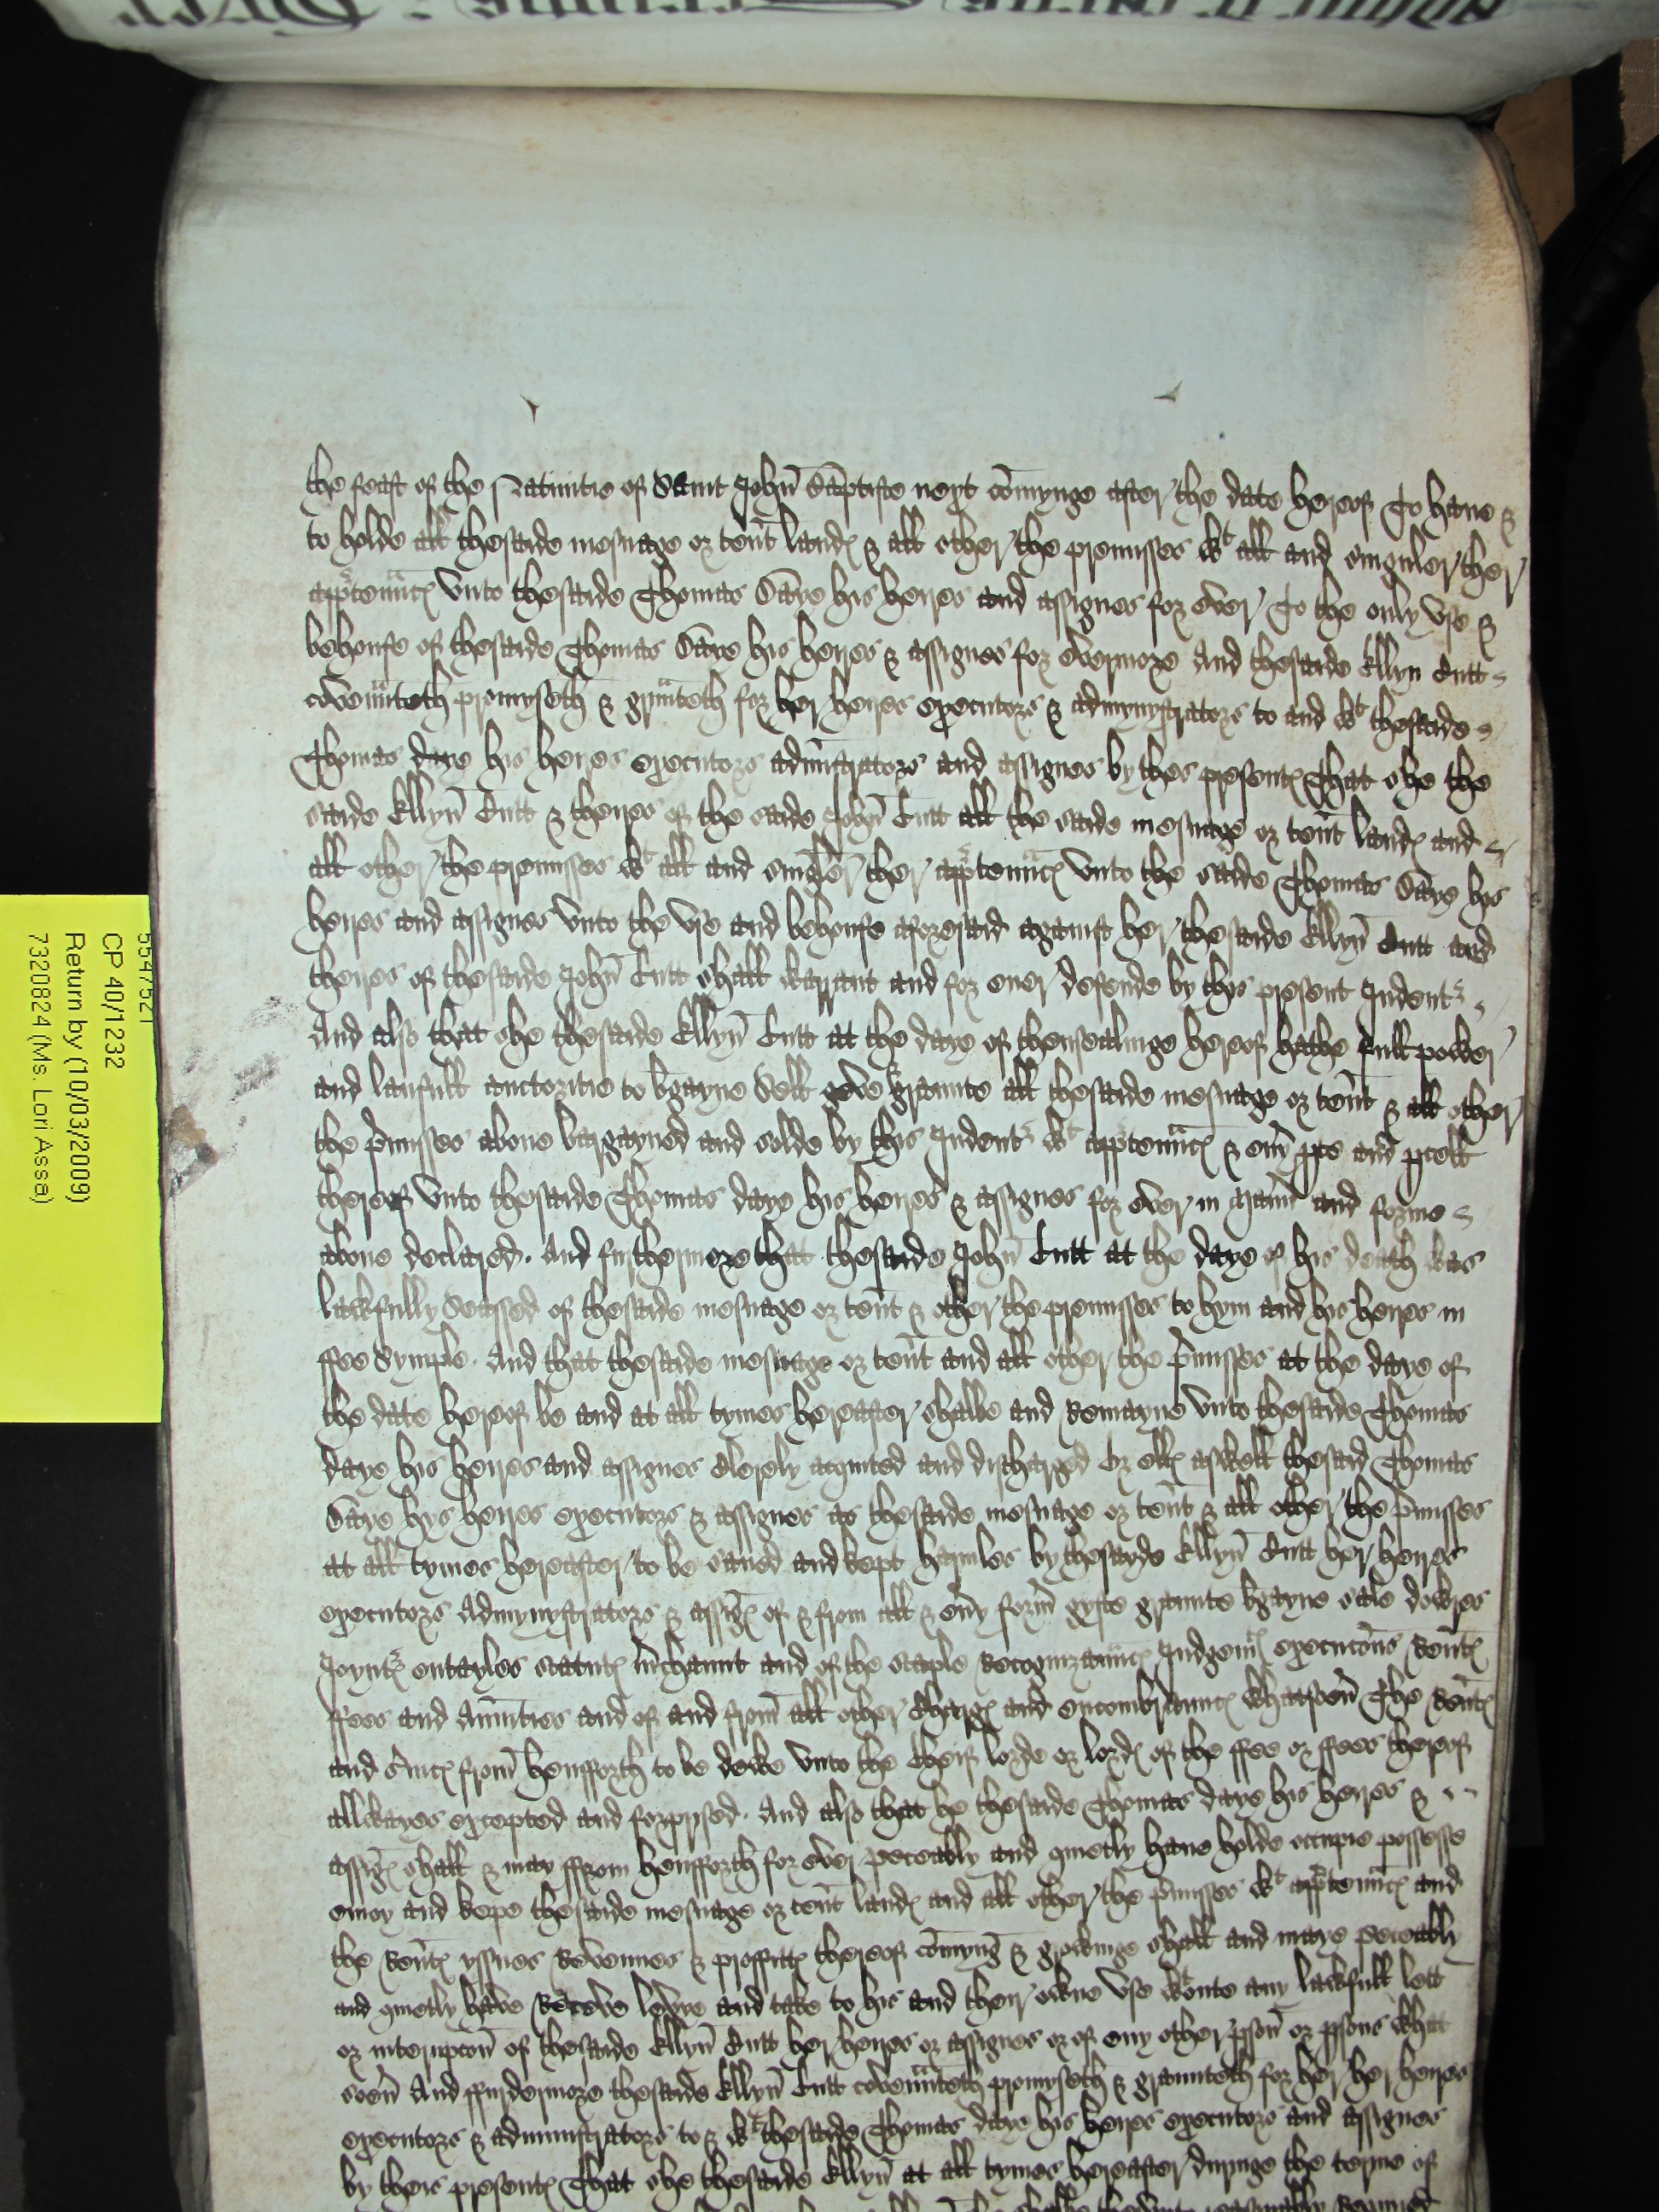 the feast of the Natiuitie of Saint John Baptiste next comynge after the date hereof To haue &
to holde all thesaide mesuage or tent land & all other the premisses wt all and singuler ther
apptennc vnto thesaide Thomas Daye his heires and assignes for ever To the only vse &
behoufe of thesaide Thomas Daye his heires & assignes for evermore And thesaide Ellyn Cutt
covennteth promyseth & grnteth for her heires executors & admynystrators to and wt thesaide
Thomas daye his heires executors administrators and assignes by thes present That she the
saide Ellyn Cutt & theires of the saide John Cutt all the saide mesuage or tent land and
all other the premisses wt all and singler ther apptennc vnto the saide Thomas Daye his
heires and assignes vnto the vse and behoufe aforesaid against her thesaide Ellyn Cutt and
theires of thesaide John Cutt shall warrant and for euer defende by this present Indent
And also that she thesaide Ellyn Cutt at the daye of thensealinge hereof hathe full power
and laufull auctoritie to bgayne sell geve & graunte all thesaide mesuage or tent & all other
the pmisses aboue bargayned and solde by this Indent wt apptennc & eny pte and pcell
thereof vnto thesaide Thomas daye his heires & assignes for ever in maner and forme
aboue declared. And furthermore that thesaide John Cutt at the daye of his death was
lawfully Seassed of thesaide mesuage or tent & other the premisses to hym and his heires in
ffee Symple. And that thesaide mesuage or tent and all other the pmisses at the daye of
the date hereof be and at all tymes hereafter shalbe and Remayne vnto thesaide Thomas
daye his heires and assignes clerely acquited and discharged Or ell aswell thesaid Thomas
Daye hys heires executors & assignes as thesaide mesuage or tent & all other the pmisses
at all tymes hereafter to be saued and kept harmles by thesayde Ellyn Cutt her heires
executors Admynystrators & assign of & from all & eny form gyfte graunte bgayne sale dowres
Joynt entayles statut mchaunt and of the staple Recognizaunc Judgemt execucons Rent
ffees and Annuities and of and from all other Charg and encombraunc whatsoeu The Rent
and suic from hensforth to be dewe vnto the Cheif lorde or lord of the ffee or ffees thereof
allwayes excepted and forprysed. And also that he thesaide Thomas daye his heires &
assign shall & may ffrom hensforth for ever peceably and quietly haue holde occupie possesse
enioy and kepe thesaide mesuage or tent land and all other the pmisses wt apptennc and
the Rent yssues Revenues & proffitt thereof comyng & growinge shall and maye peceably
and quietly have Receve levye and take to his and their owne vse wtoute any lawfull lett
or interupcon of thesaide Ellyn Cutt her heires or assignes or of eny other pson or psons what
soeu And ffurdermore thesaide Ellyn Cutt covennteth promyseth & graunteth for her her heires
executors & administrators to & wt thesaide Thomas daye his heires executors and assignes
by theis present That she thesaide Ellyn at all tymes hereafter duringe the terme of
5547521
CP 40/1232
Return by (10/03/2009)
7320824 (Ms. Lori Asse)